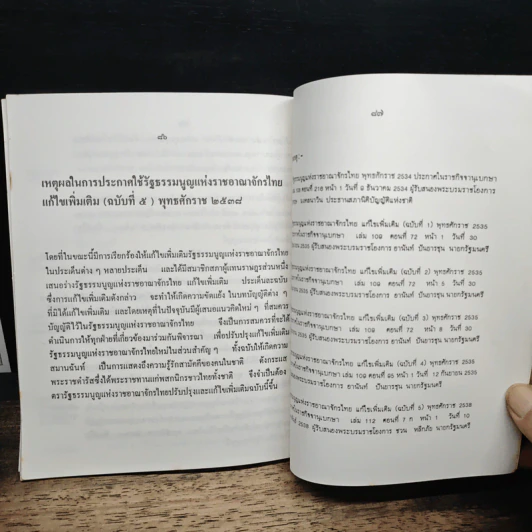 ๘๖
เหตุผลในการประกาศใช้รัฐธรรมนูญแห่งราชอาณาจักรไทย
แก้ไขเพิ่มเติม (ฉบับที่ ๕ ) พุทธศักราช ๒๕๓๘
โดยที่ในขณะนี้มีการเรียกร้องให้แก้ไขเพิ่มเติมรัฐธรรมนูญแห่งราชอาณาจักรไทย
ในประเด็นต่าง ๆ หลายประเด็น และได้มีสมาชิกสภาผู้แทนราษฎรส่วนหนึ่ง
เสนอร่างรัฐธรรมนูญแห่งราชอาณาจักรไทย แก้ไขเพิ่มเติม ประเด็นละฉบับ
ซึ่งการแก้ไขเพิ่มเติมดังกล่าว จะทำให้เกิดความขัดแย้ง ในบทบัญญัติต่าง ๆ
ที่มิได้แก้ไขเพิ่มเติม และโดยเหตุที่ในปัจจุบันมีผู้เสนอแนวคิดใหม่ ๆ ที่สมควร
บัญญัติไว้ในรัฐธรรมนูญแห่งราชอาณาจักรไทย จึงเป็นการสมควรที่จะ
ดำเนินการให้ทุกฝ่ายที่เกี่ยวข้องมาร่วมกันพิจารณา เพื่อปรับปรุงแก้ไขเพิ่มเติม
รัฐธรรมนูญแห่งราชอาณาจักรไทยใหม่ในส่วนสำคัญ ๆ ทั้งฉบับให้เกิดความ
สมานฉันท์ เป็นการแสดงถึงความรู้รักสามัคคีของคนในชาติ ดังกระแส
พระราชดำรัสซึ่งได้พระราชทานแก่พสกนิกรชาวไทยทั้งชาติ จึงจำเป็นต้อง
ตรารัฐธรรมนูญแห่งราชอาณาจักรไทยปรับปรุงและแก้ไขเพิ่มเติมฉบับนี้ขึ้น
๘๗
แห่งราชอาณาจักรไทย พุทธศักราช 2534 ประกาศในราชกิจจานุเบกษา
108 ตอนที่ 216 หน้า 1 วันที่ 9 ธันวาคม 2534 ผู้รับสนองพระบรมราชโองการ
ประธานสภานิติบัญญัติแห่งชาติ
แห่งราชอาณาจักรไทย แก้ไขเพิ่มเติม (ฉบับที่ 1) พุทธศักราช 2535
เล่ม 109 ตอนที่ 72 หน้า 1 วันที่ 30
2535 ผู้รับสนองพระบรมราชโองการ อานันท์ ปันยารชุน นายกรัฐมนตรี
แห่งราชอาณาจักรไทย แก้ไขเพิ่มเติม (ฉบับที่ 2) พุทธศักราช 2535
เล่ม 109 ตอนที่ 72 หน้า 5 วันที่ 30
2535 ผู้รับสนองพระบรมราชโองการ อานันท์ ปันยารชุน นายกรัฐมนตรี
แห่งราชอาณาจักรไทย แก้ไขเพิ่มเติม (ฉบับที่ 3) พุทธศักราช 2535
เล่ม 109 ตอนที่ 72 หน้า 8 วันที่ 30
ผู้รับสนองพระบรมราชโองการ อานันท์ ปันยารชุน นายกรัฐมนตรี
แห่งราชอาณาจักรไทย แก้ไขเพิ่มเติม (ฉบับที่ 4) พุทธศักราช 2535
เล่ม 109 ตอนที่ 95 หน้า 1 วันที่ 12 กันยายน 2535
ผู้รับสนองพระบรมราชโองการ อานันท์ ปันยารชุน นายกรัฐมนตรี
แห่งราชอาณาจักรไทย แก้ไขเพิ่มเติม (ฉบับที่ 5) พุทธศักราช 2538
เล่ม 112 ตอนที่ 7 ก หน้า 1 วันที่ 10
2538 ผู้รับสนองพระบรมราชโองการ ชวน หลีกภัย นายกรัฐมนตรี